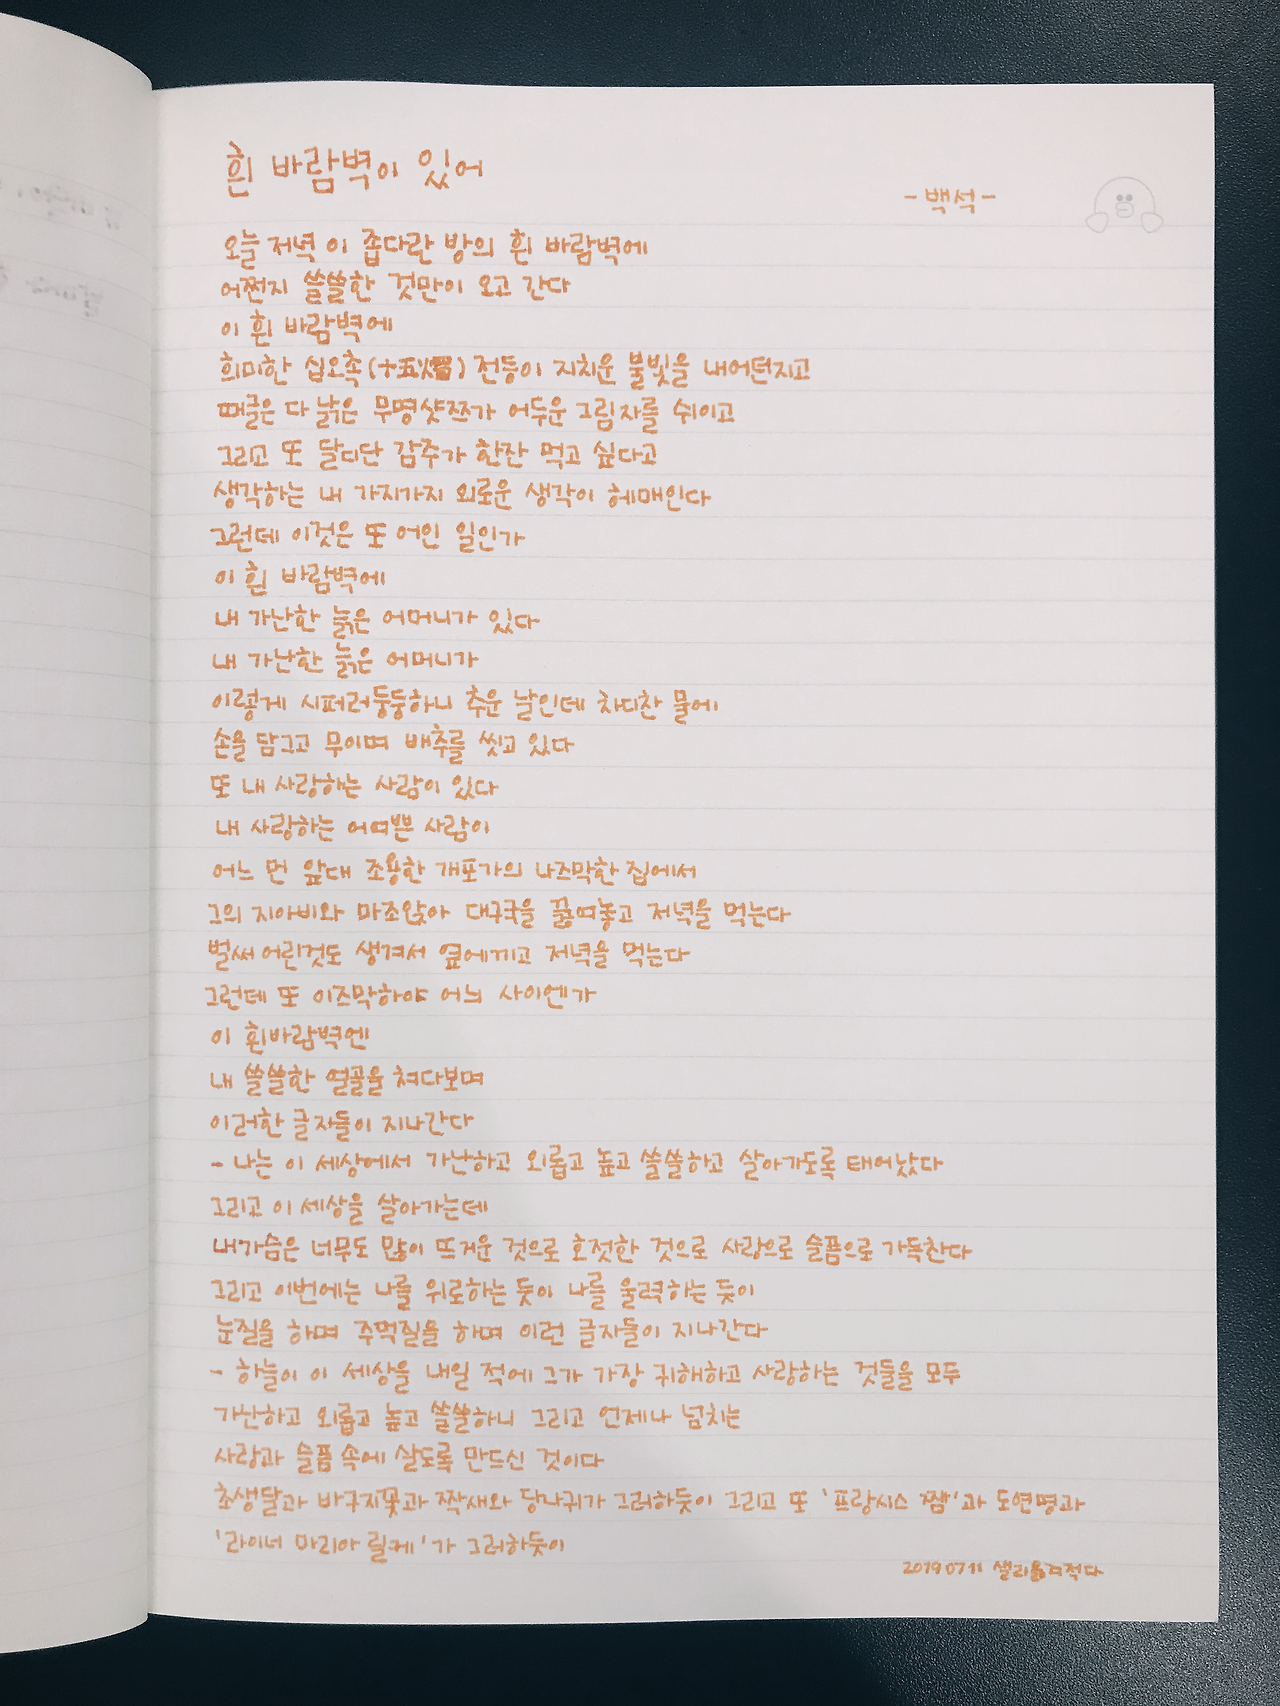 흰 바람벽이 있어
-백석-
오늘 저녁 이 좁다란 방의 흰 바람벽에
어쩐지 쓸쓸한 것만이 오고 간다
이 흰 바람벽에
희미한 십오촉(十五燭) 전등이 지치운 불빛을 내어던지고
때글은 다 낡은 무명샷쯔가 어두운 그림자를 쉬이고
그리고 또 달디단 감주가 한잔 먹고 싶다고
생각하는 내 가지가지 외로운 생각이 헤매인다
그런데 이것은 또 어인 일인가
이 흰 바람벽에
내 가난한 늙은 어머니가 있다
내 가난한 늙은 어머니가
이렇게 시퍼러둥둥하니 추운 날인데 차디찬 물에
손을 담그고 무이며 배추를 씻고 있다
또 내 사랑하는 사람이 있다
내 사랑하는 어여쁜 사람이
어느 먼 앞대 조용한 개포가의 나즈막한 집에서
그의 지아비와 마조앉아 대구국을 끓여놓고 저녁을 먹는다
벌써 어린것도 생겨서 옆에끼고 저녁을 먹는다
그런데 또 이즈막하야 어늬 사이엔가
이 흰바람벽엔
내 쓸쓸한 얼골을 쳐다보며
이러한 글자들이 지나간다
- 나는 이 세상에서 가난하고 외롭고 높고 쓸쓸하고 살아가도록 태어났다
그리고 이 세상을 살아가는데
내가슴은 너무도 많이 뜨거운 것으로 호젓한 것으로 사랑으로 슬픔으로 가득찬다
그리고 이번에는 나를 위로하는 듯이 나를 울력하는 듯이
눈질을 하며 주먹질을 하며 이런 글자들이 지나간다
- 하늘이 이 세상을 내일 적에 그가 가장 귀해하고 사랑하는 것들을 모두
가난하고 외롭고 높고 쓸쓸하니 그리고 언제나 넘치는
사랑과 슬픔 속에 살도록 만드신 것이다
초생달과 바구지꽃과 짝새와 당나귀가 그러하듯이 그리고 또 '프랑시스 쨈'과 도연명과
'라이너 마리아 릴케'가 그러하듯이
20190711 샐리옮겨적다